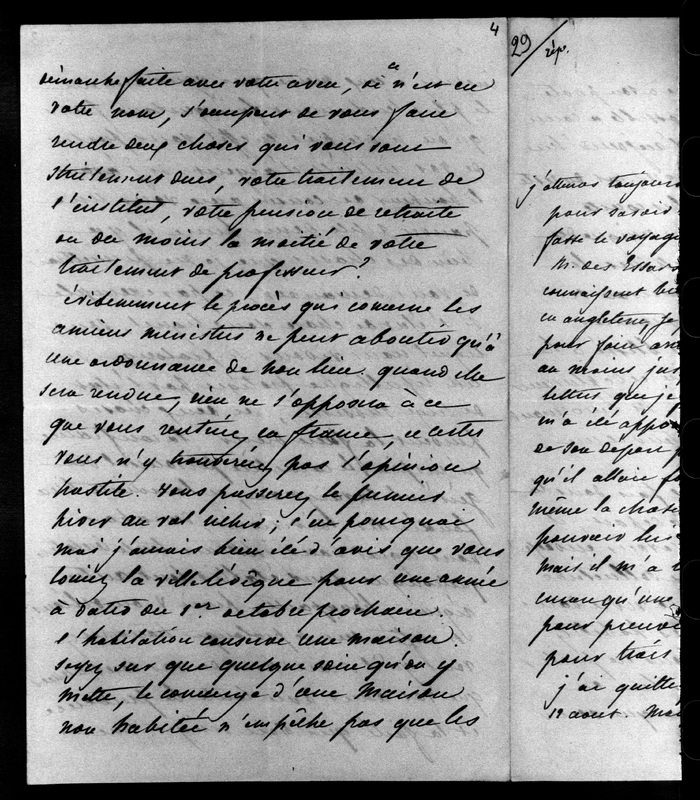 4
démarche faite avec votre aveu, si ce n'est en
votre nom, s'occupent de vous faire
rendre deux choses qui vous sont
strictement dues, votre traitement de
l'institut, votre pension de retraite
ou du moins la moitié de votre
traitement de professeur?
évidemment le procès qui concerne les
anciens ministres ne peut aboutir qu'à
une ordonnance de non lieu. quand elle
sera rendue, rien ne s'opposera à ce
que vous rentriez en france, et certes
vous n'y trouverez pas l'opinion
hostile. vous passerez le premier
hiver au val richer; c'est pourquoi
moi j'aurais bien été d'avis que vous
louiez la ville l'évêque pour une année
à dater du 1er octobre prochain.
l'habitation conserve une maison.
soyez sur que quelque soin qu'on y
mette, le concierge d'une maison
non habitée n'empêche pas que les
29/ rép.
j'attens toujours
pour savoir
fasse le voyage
M. des Essar
connaissent bie
en angleterre, je
pour faire
au moins jus
lettres que j'e
m'a été appor
de son départ p
qu'il allait f
même la chose
pouvoir
Mais il m'a
encore qu'une
pour
pour
j'ai quitté
19 aout. Mo